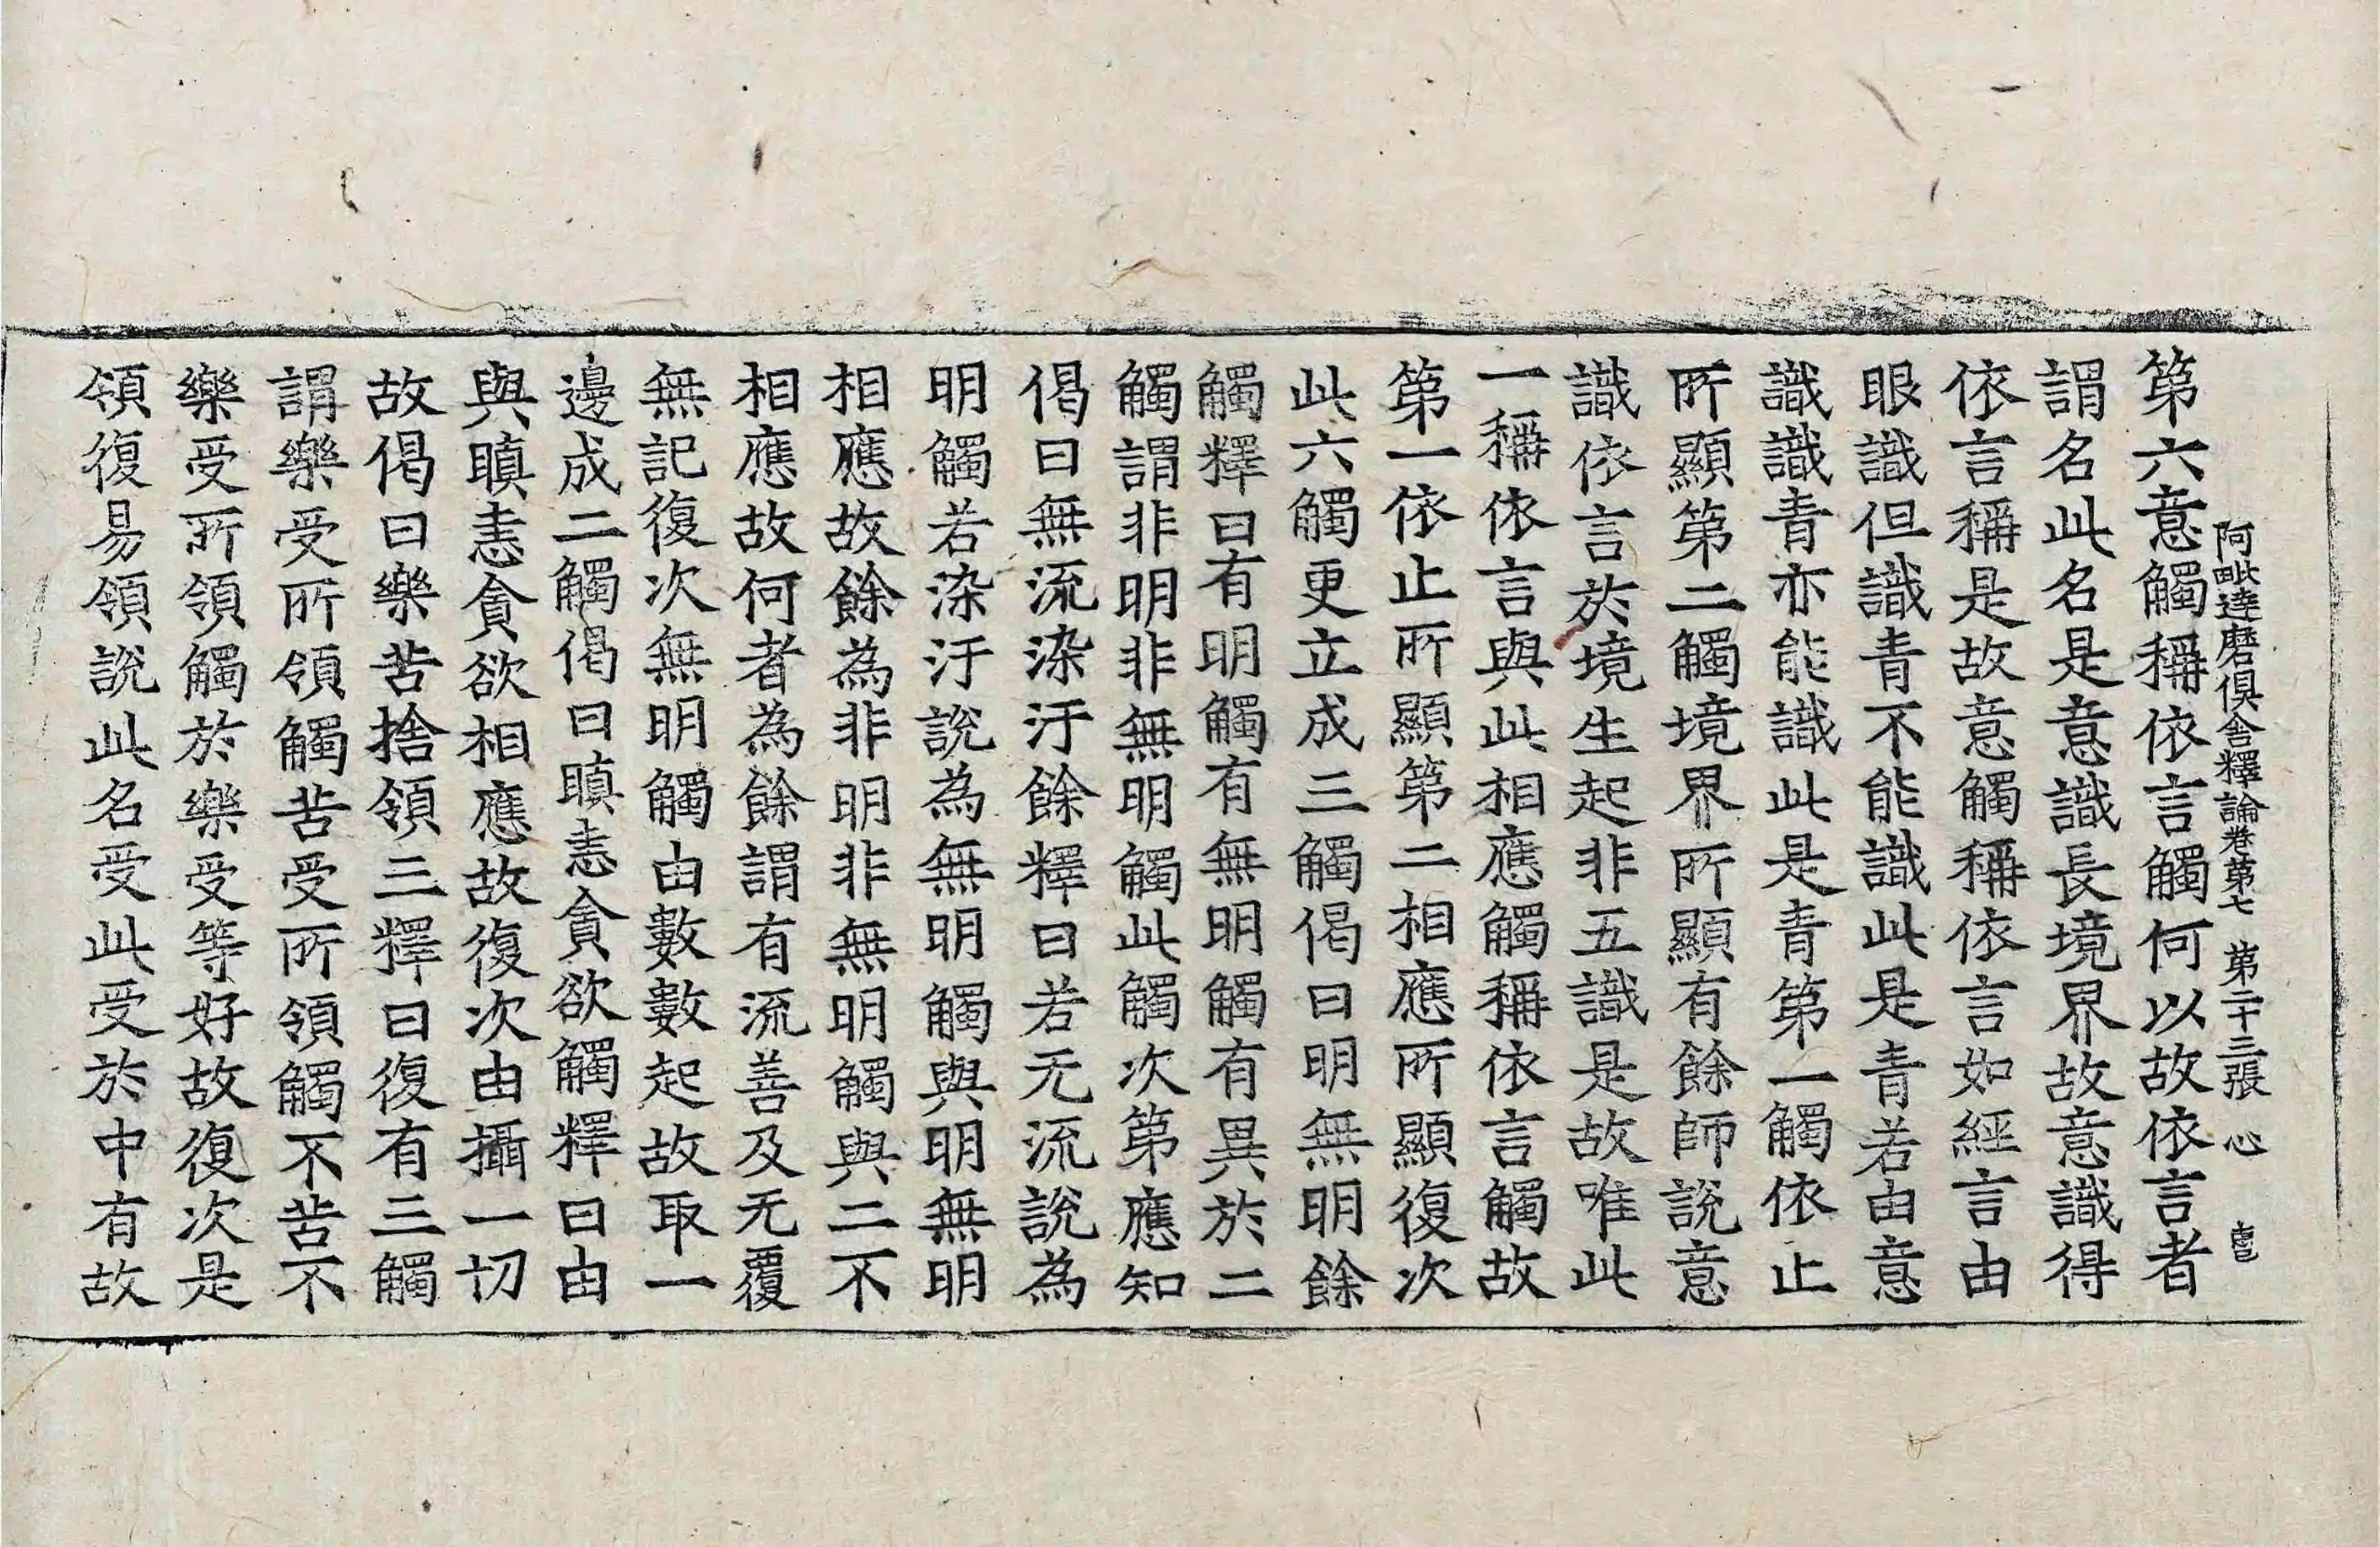 阿毗達磨俱舍釋論卷第七 第二十三張 心
第六意觸稱依言觸何以故依言者
謂名此名是意識長境界故意識得
依言稱是故意觸稱依言如經言由
眼識但識青不能識此是青若由意
識識青亦能識此是青第一觸依止
所顯第二觸境界所顯有餘師說意
識依言於境生起非五識是故唯此
一稱依言與此相應觸稱依言觸故
第一依止所顯第二相應所顯復次
此六觸更立成三觸偈曰明無明餘
觸釋曰有明觸有無明觸有異於二
觸謂非明非無明觸此觸次第應知
偈曰無流染汙餘釋曰若无流說為
明觸若染汙說為無明觸與明無明
相應故餘為非明非無明觸與二不
相應故何者為餘謂有流善及无覆
無記復次無明觸由數數起故取一
邊成二觸偈曰瞋恚貪欲觸釋曰由
與瞋恚貪欲相應故復次由攝一切
故偈曰樂苦捨領三釋曰復有三觸
謂樂受所領觸苦受所領觸不苦不
樂受所領觸於樂受等好故復次是
領復易領說此名受此受於中有故